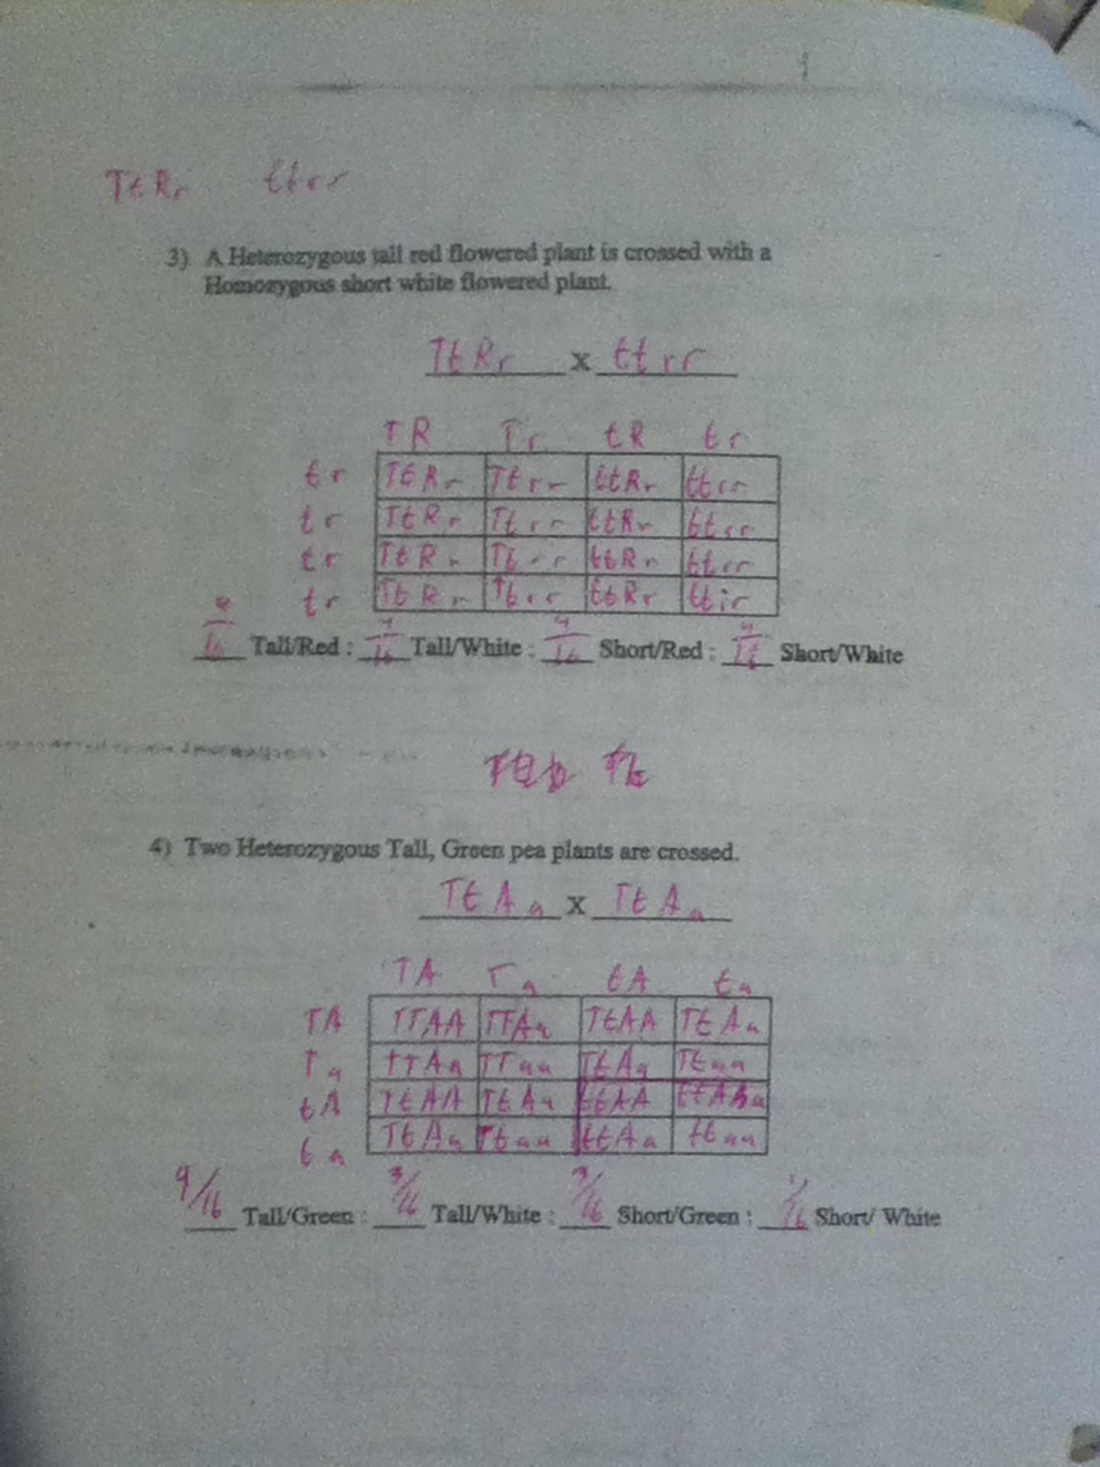 TtRr ttrr
3) A Heterozygous tall red flowered plant is crossed with a
Homozygous short white flowered plant.
TtRr x ttrr
TR Tr tR tr
tr TtRr Ttrr ttRr ttrr
tr TtRr Ttrr ttRr ttrr
tr TtRr Ttrr ttRr ttrr
tr TtRr Ttrr ttRr ttrr
4/16 Tall/Red : 4/16 Tall/White : 4/16 Short/Red : 4/16 Short/White
4) Two Heterozygous Tall, Green pea plants are crossed.
TtAa x TtAa
TA Ta tA ta
TA TTAA TTAa TtAA TtAa
Ta TTAa TTaa TtAa Ttaa
tA TtAA TtAa ttAA ttAa
ta TtAa Ttaa ttAa ttaa
9/16 Tall/Green : 3/16 Tall/White : 3/16 Short/Green : 1/16 Short/ White